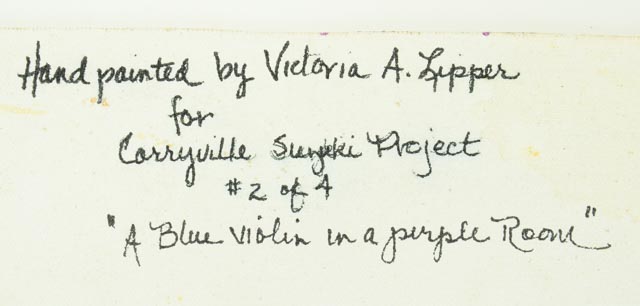 Hand painted by Victoria A. Lipper
for
Corryville Suzuki Project
#2 of 4
"A Blue Violin in a purple Room"